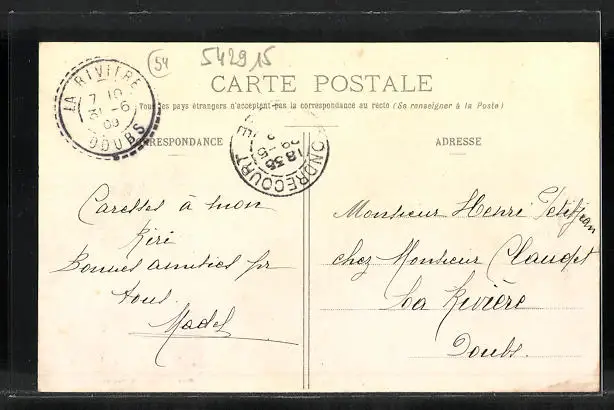 54
542915
LA RIVIÈRE
7 10
31 -6
09
DOUBS
CARTE POSTALE
Tous les pays étrangers n'acceptent pas la correspondance au recto (Se renseigner à la Poste)
CORRESPONDANCE
ADRESSE
ONDRECOURT
18 35
Caresses à mon
Kiri
Bonnes amitiés pr
tous.
Madel
Monsieur Henri Petitjean
chez Monsieur Claudet
La Rivière
Doubs.